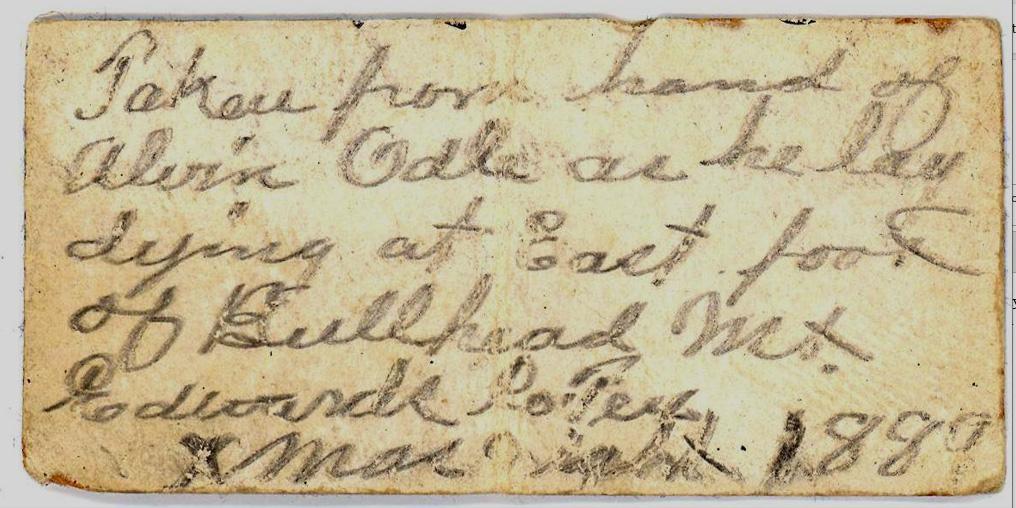 Taken from hand of
Alvin Odle as he lay
dying at East foot
of Bullhead Mt.
Edwards Co. Tex,
Xmas night 1889